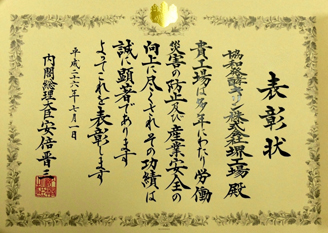 表彰状
協和発酵キリン株式会社堺工場殿
貴工場は多年にわたり労働
災害の防止及び産業安全の
向上に尽くされその功績は
誠に顕著であります
よってこれを表彰します
平成二六年七月一日
内閣総理大臣安倍晋三